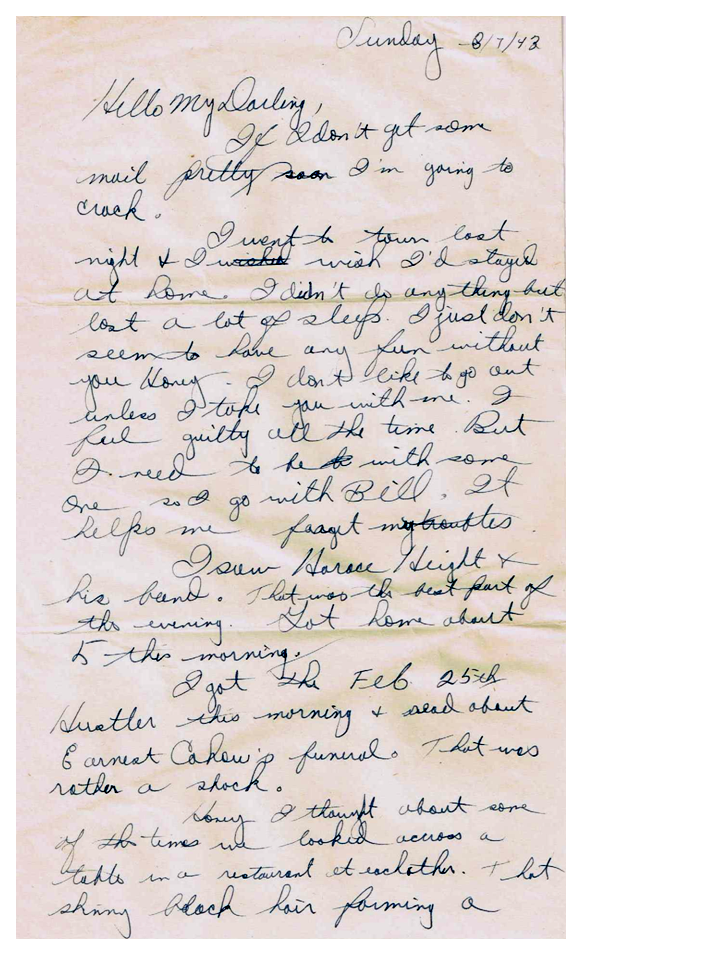 Sunday 3/7/43
Hello My Darling,
If I don't get some
mail pretty soon I'm going to
crack.
I went to town last
night & I wished wish I'd stayed
at home. I didn't do anything but
lost a lot of sleep. I just don't
seem to have any fun without
you Honey. I don't like to go out
unless I take you with me. I
feel guilty all the time. But
I need to be with some
one so I go with Bill. It
helps me forget my troubles.
I saw Horace Height &
his band. That was the best part of
the evening. Got home about
5 this morning.
I got the Feb 25th
Hustler this morning & read about
Earnest Cahow's funeral. That was
rather a shock.
Honey I thought about some
of the times we looked across a
table in a restaurant at eachother. That
shinny black hair forming a